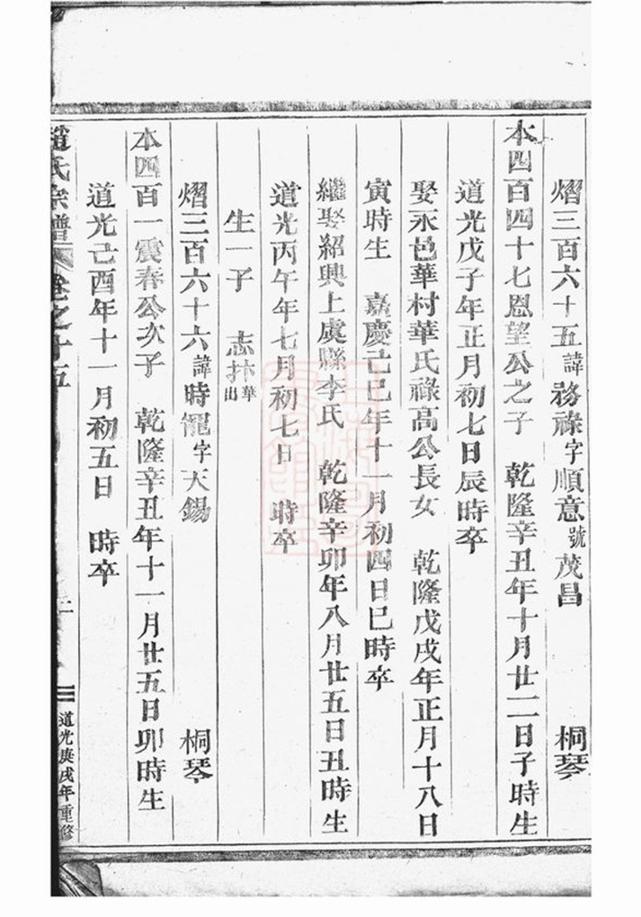 熠三百六十五諱務祿字順意號茂昌 桐琴
本四百四十七恩望公之子 乾隆辛丑年十月廿二日子時生
道光戊子年正月初七日辰時卒
娶永邑華村華氏祿高公長女 乾隆戊戌年正月十八日
寅時生 嘉慶己巳年十一月初四日巳時卒
繼娶紹興上虞縣李氏 乾隆辛卯年八月廿五日丑時生
道光丙午年七月初七日 時卒
生一子 志 華出
熠三百六十六諱時寵字天錫 桐琴
本四百一震春公次子 乾隆辛丑年十一月廿五日卯時生
道光己酉年十一月初五日 時卒
趙氏宗譜 卷之十五 二 道光庚戌年重修